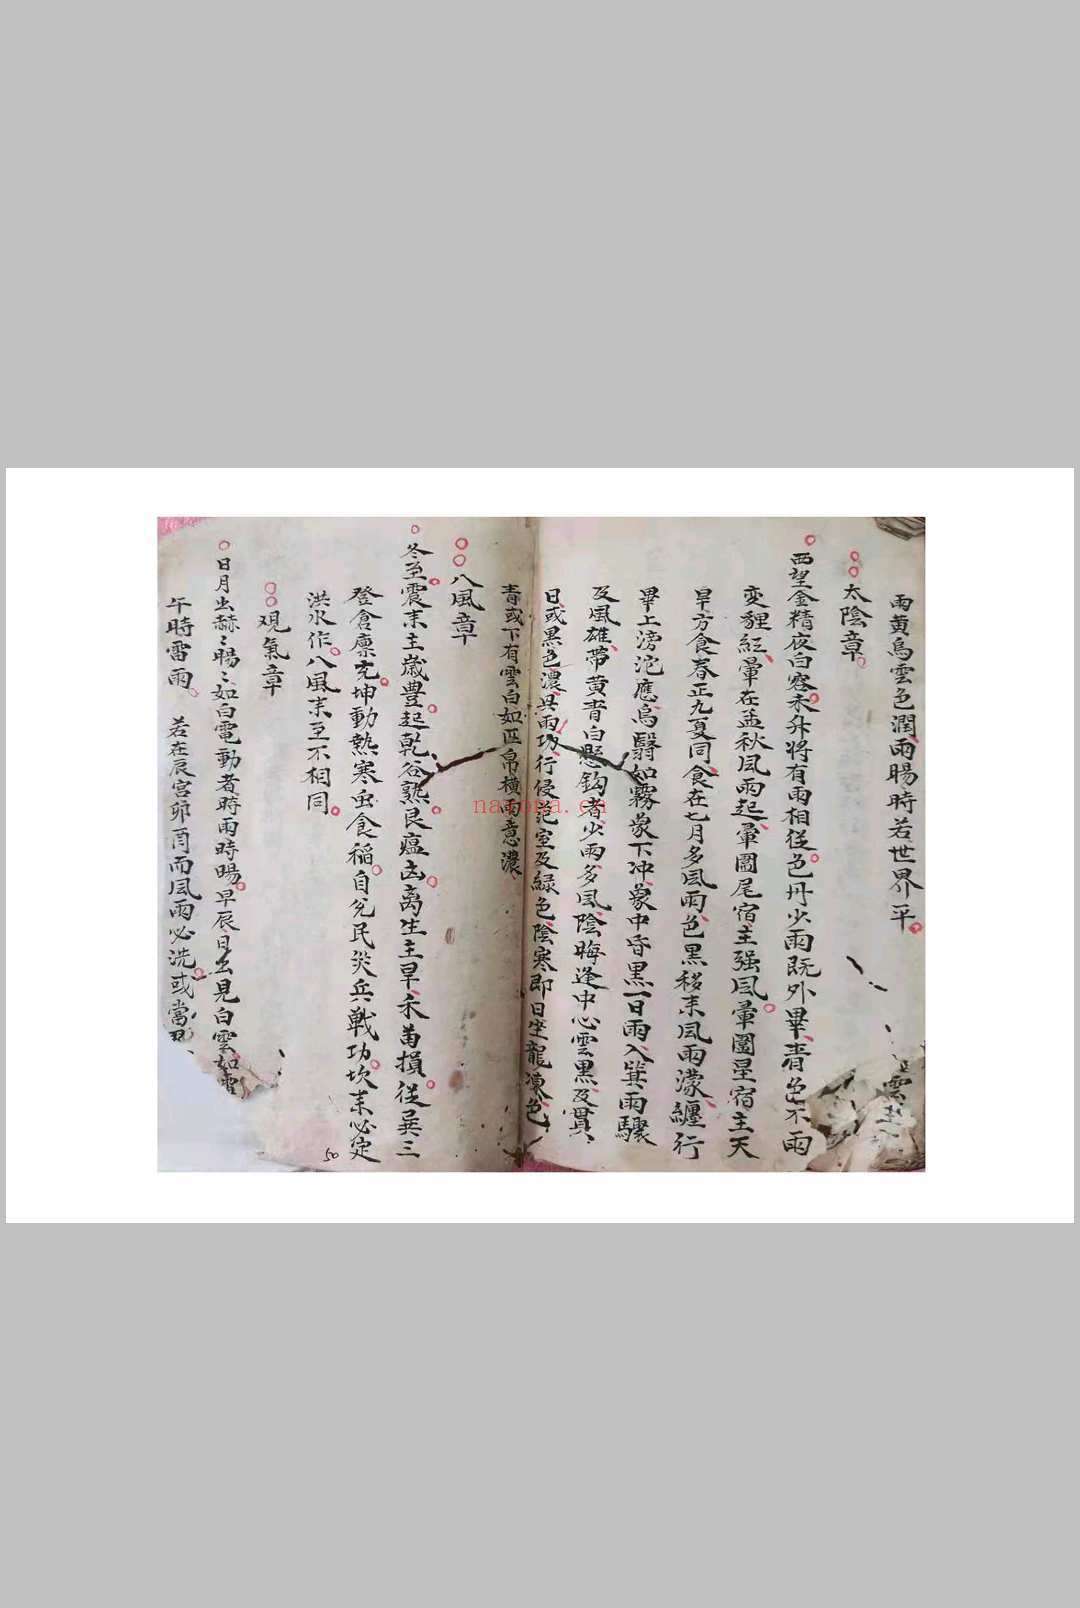 雨黄烏雲色潤雨暘時若世界平
雲
太陰章
西望金精夜白容未升將有雨相従色丹少雨既外畢青色不雨
変貍紅暈在孟秋風雨起暈圍尾宿主强風暈圍星宿主天
旱方食春正九夏同食在七月多風雨色黑移来風雨濛纏行
畢上滂沱應烏翳如霧蒙下冲蒙中昏黒一日雨入箕雨驟
及風雄帶黄青白懸鈎者少雨多風陰晦逢中心雲黒及貫
日或黒色濃興雨功行侵范室及緑色陰寒即日坐龍凍色
青或下有雲白如匹帛横雨意濃
八風章
冬至震来主歳豊起乾谷熟艮瘟凶离生主旱禾苗損従巽三
登倉廪充坤動熱寒虫食稲自兌民災兵戰功坎来必定
洪水作八風来至不相同
50
观氣章
日月出赫〻暘〻如白電動者時雨時暘早辰日出見白雲如
午時雷雨 若在辰宫卯酉而風雨必洗或當
nayona.cn